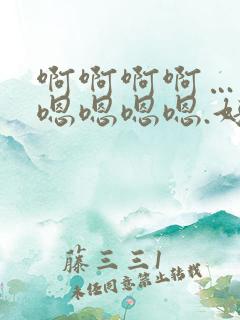 啊啊啊啊…
嗯嗯嗯嗯.
藤三三1
未经同意禁止转载